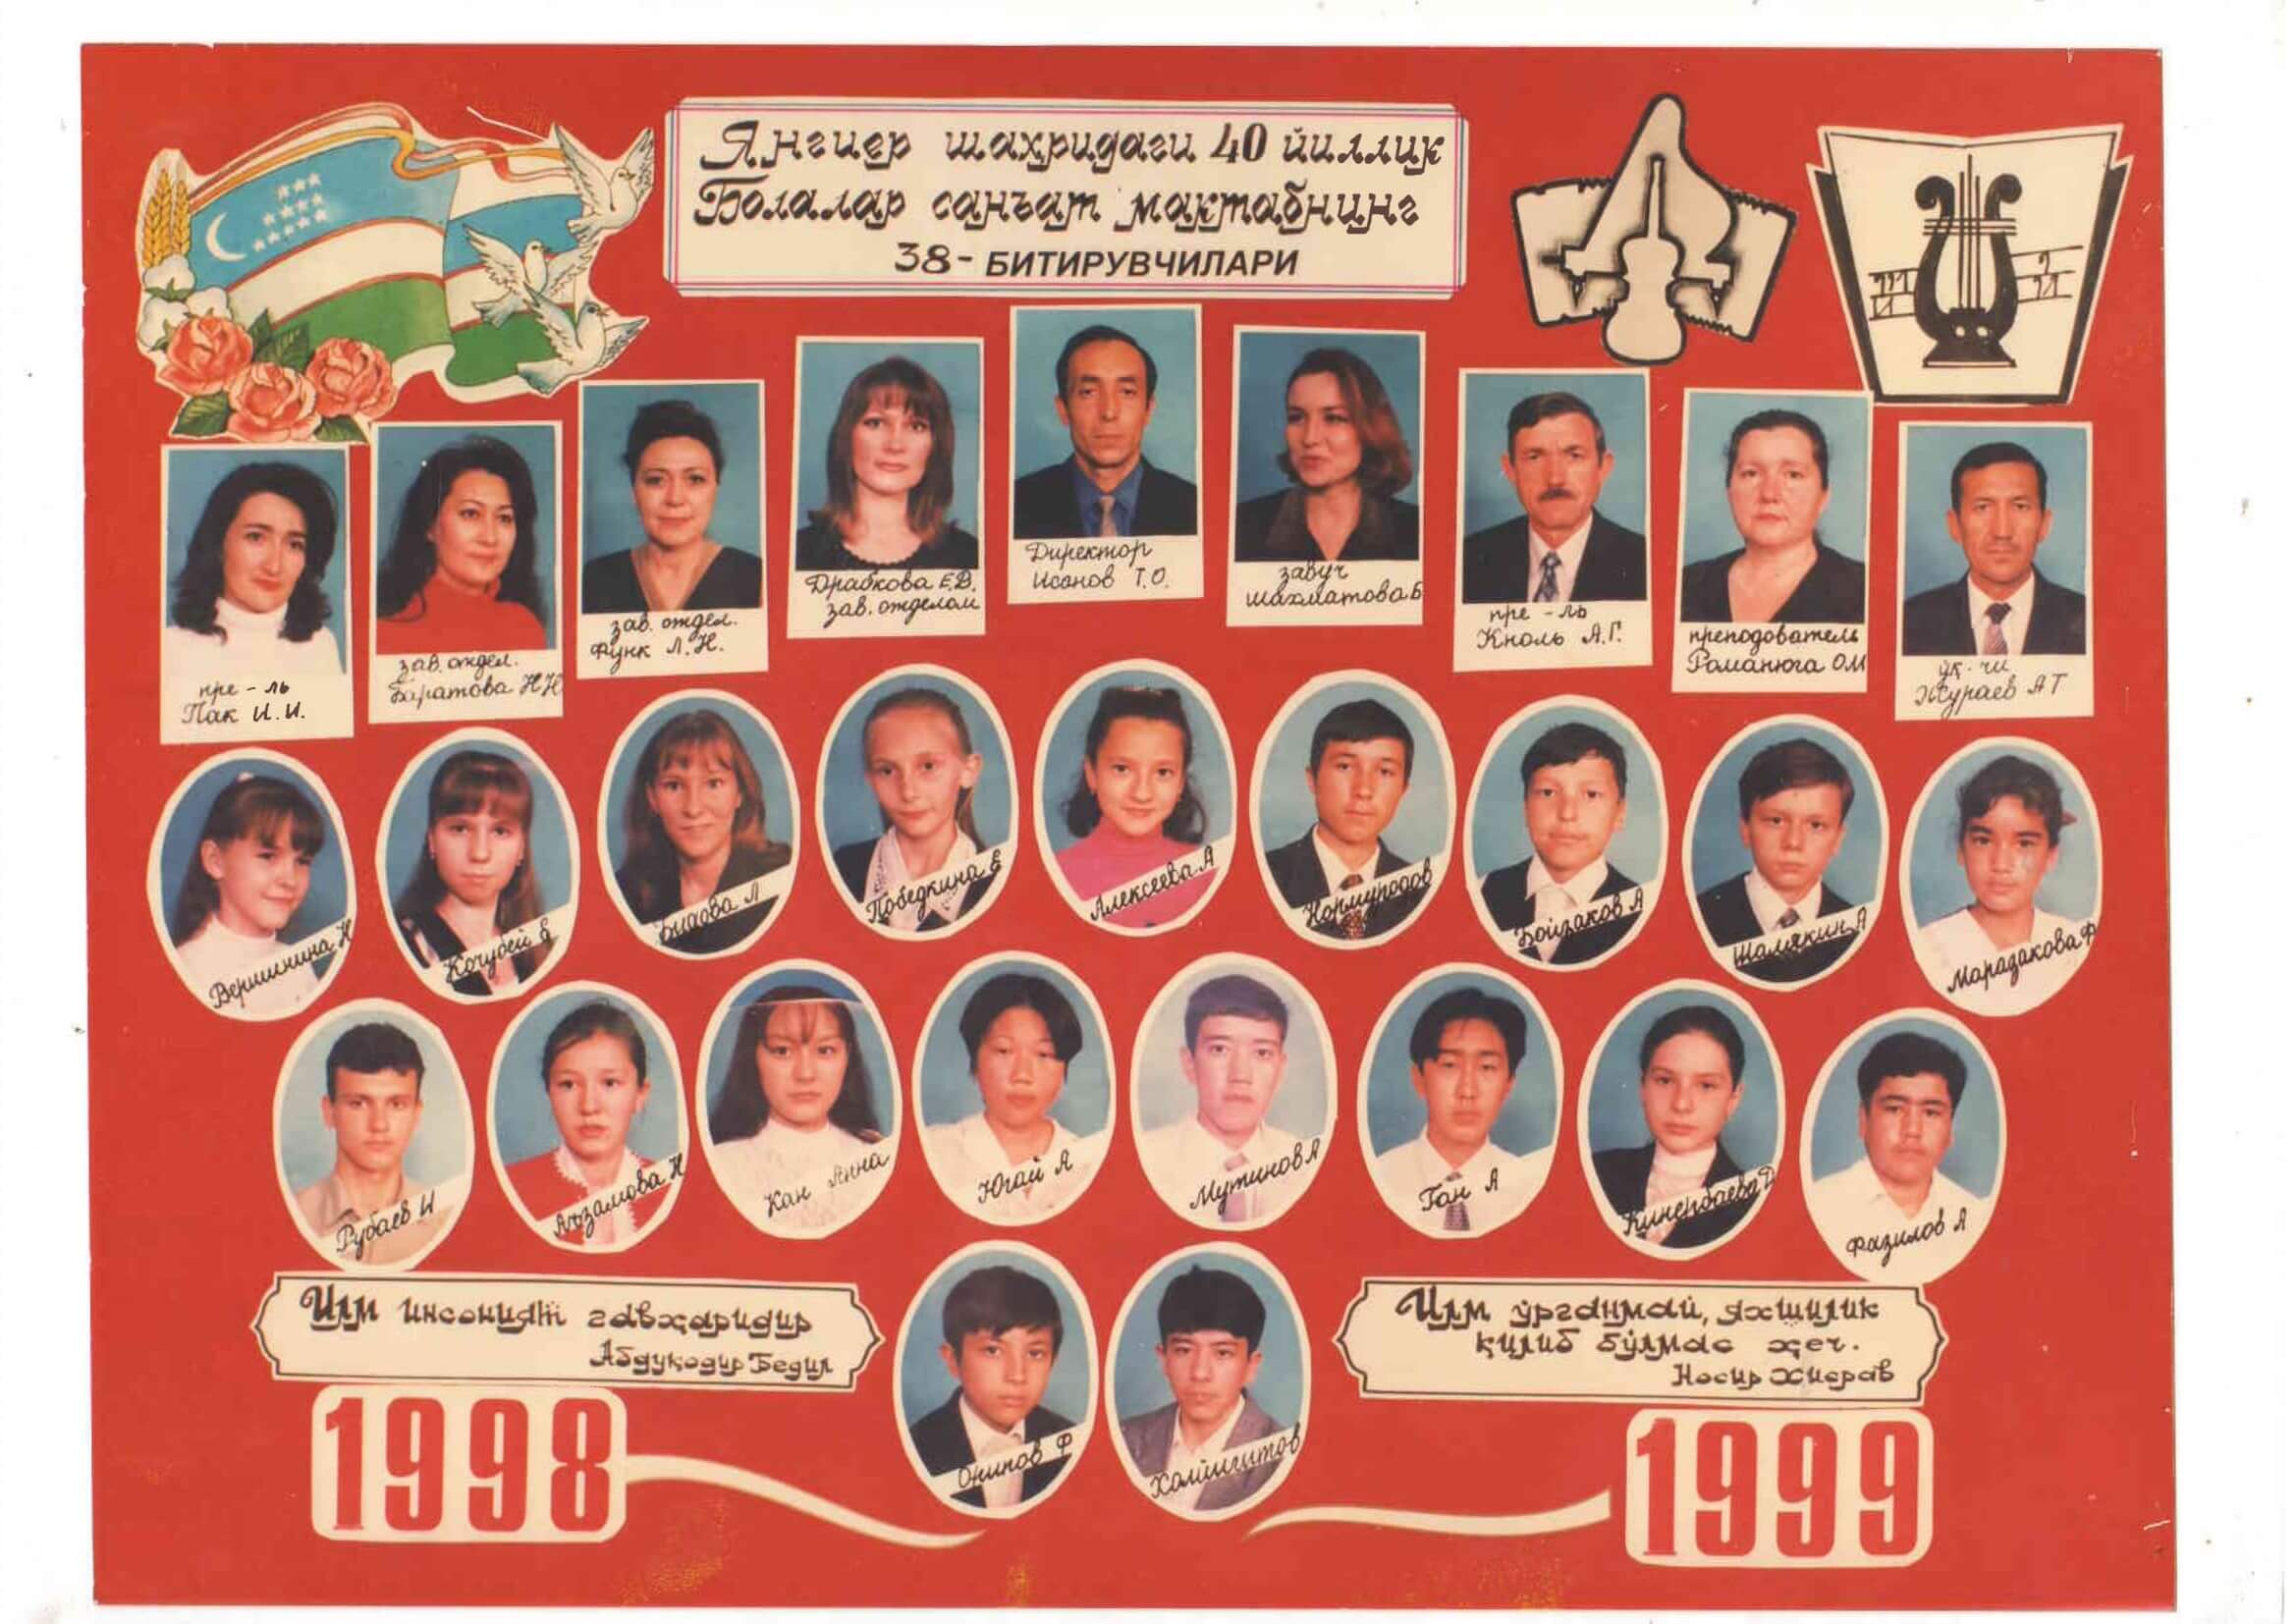 Янгиер шаҳридаги 40 йиллик
Болалар санъат мактабнинг
38- БИТИРУВЧИЛАРИ
пре-ль
Пак И.И.
зав. отдел.
Баратова Н Н
зав. отдел.
Функ Л.Н.
Драбкова Е.В.
зав. отделом
Директор
Исанов Т.О.
завуч
шахматова Б
пре-ль
Кноль А.Г.
преподователь
Романюга ОМ
ўқ-чи
Жураев АТ
Вершинина Н
Кочубей Е
Л
Победкина Е
Алексеева А
Нормуродов
Бойзаков А
Шамякин А
Марадакова Ф
Рубаев И
Аъзамова Н
Кан Анна
Югай А
Мутинов А
Тан А
Д
Фазилов А
Ф
Илм инсоният гавҳаридир
Абдуқодир Бедил
Илм ўрганмай, яхшилик
қилиб бўлмас ҳеч.
Носир Хисрав
1998
1999